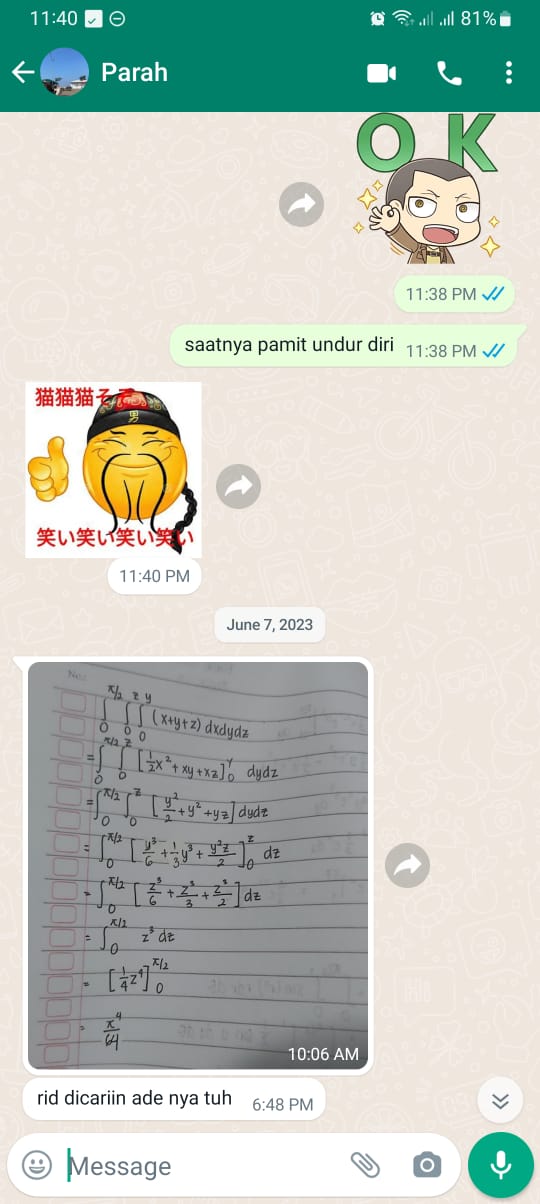 11:40
81%
Parah
O K
11:38 PM
saatnya pamit undur diri 11:38 PM
猫猫猫子子
男
笑い笑い笑い笑い
11:40 PM
June 7, 2023
No:
∫₀^{π/2} ∫₀^z ∫₀^y (x+y+z) dxdydz
= ∫₀^{π/2} ∫₀^z [½x² + xy + xz]₀^y dydz
= ∫₀^{π/2} ∫₀^z [y²/2 + y² + yz] dydz
= ∫₀^{π/2} [y³/6 + ⅓y³ + y²z/2]₀^z dz
= ∫₀^{π/2} [z³/6 + z³/3 + z³/2] dz
= ∫₀^{π/2} z³ dz
= [¼z⁴]₀^{π/2}
= π⁴/64
10:06 AM
rid dicariin ade nya tuh 6:48 PM
Message